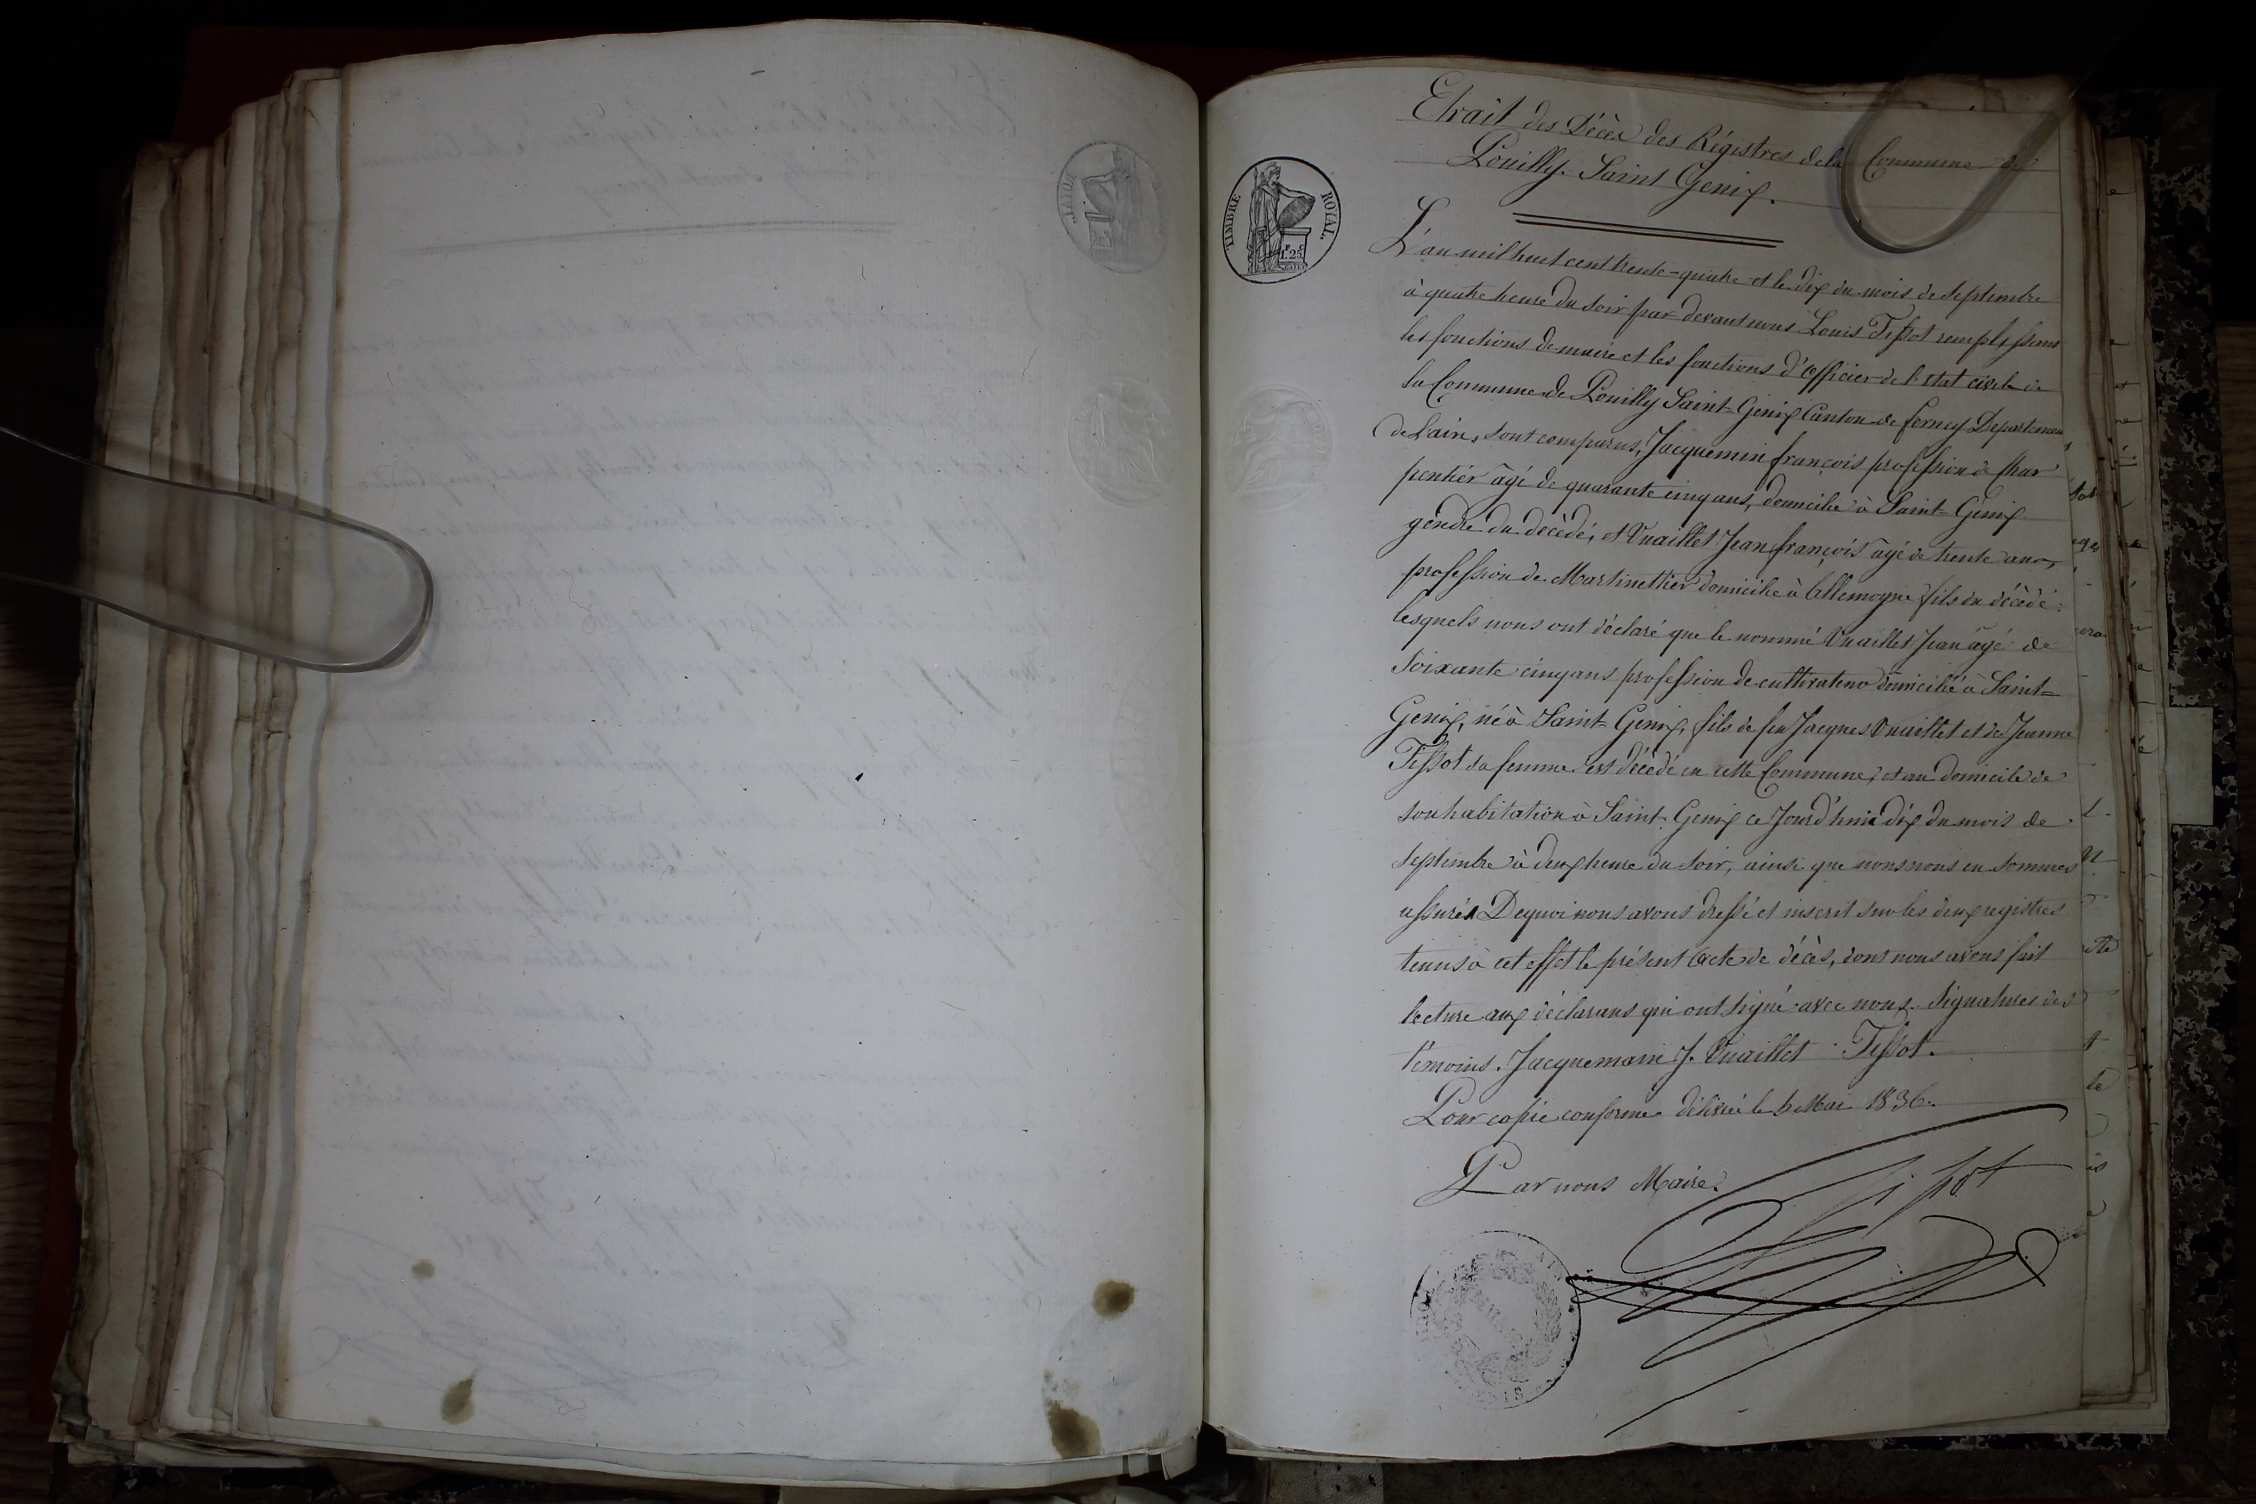 Etrait des Décès des Régistres de la Commune de
Pouilly-Saint Genix.
TIMBRE ROYAL.
1F 25C
L'an mil huit cent trente-quatre et le dix du mois de septembre
à quatre heure du soir par devant nous Louis Tissot remplissant
les fonctions de maire et les fonctions d'Officier de l'etat civile de
la Commune de Pouilly Saint-Genix Canton de ferney Departemen
de l'ain, sont comparus, Jacquemin françois profession de Char
pentier âgé de quarante cinq ans, domicilié à Saint-Genix
gendre du decèdé, et Vuaillet Jean françois agé de trente ans,
profession de Martinettier domicilié à Allemogne fils du décédé:
lesquels nous ont déclaré que le nommé Vuaillet Jean âgé de
Soixante cinq ans profession de cultivateur domicilié à Saint=
Genix, né à Saint-Genix, fils de feu Jacques Vuaillet et de Jeanne
Tissot sa femme est décédé en cette Commune, et au domicile de
son habitation à Saint-Genix ce Jourd'hui dix du mois de
septembre à deux heure du soir, ainsi que nous nous en sommes
assurés De quoi nous avons dressé et inscrit sur les deux registres
tenus à cet effet le présent acte de décès, dont nous avons fait
lecture aux déclarans qui ont signé avec nous. Signatures des
témoins. Jacquemain J. Vuaillet Tissot.
Pour copie conforme délivré le 6 Mai 1836.
Par nous Maire.
Tissot